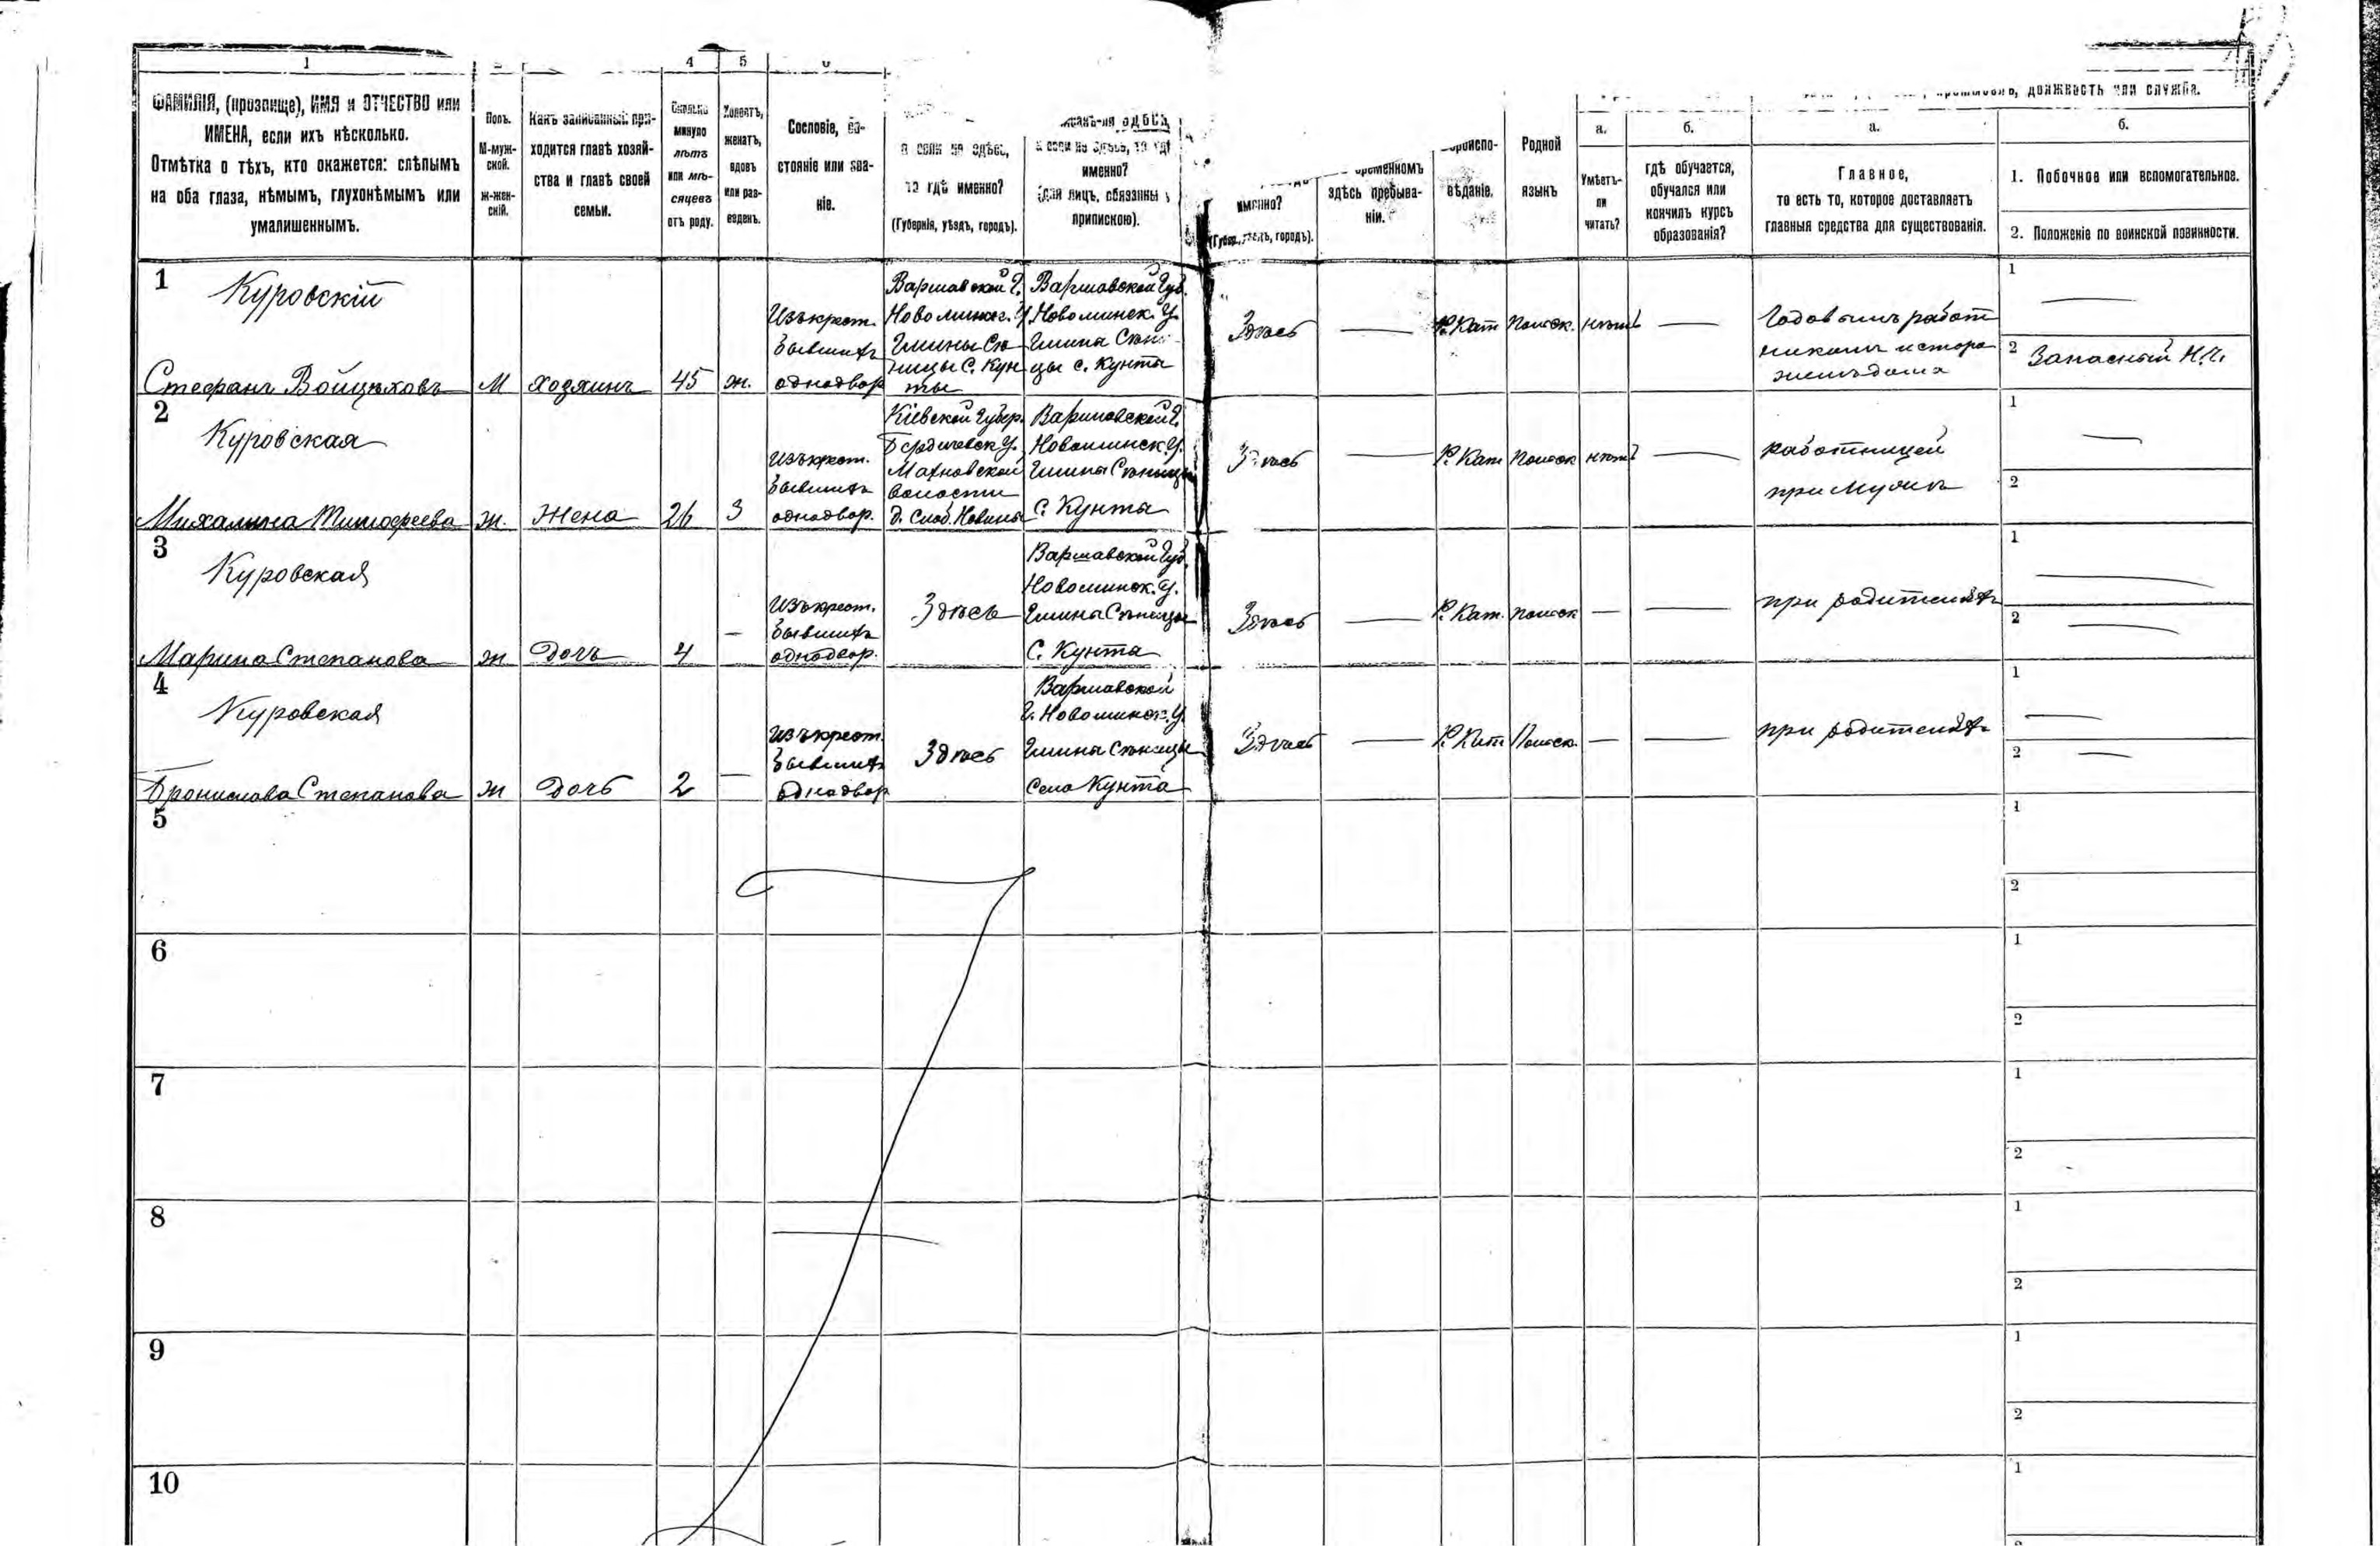 1
4
5
ФАМИЛІЯ, (прозвище), ИМЯ и ОТЧЕСТВО или
ИМЕНА, если ихъ нѣсколько.
Отмѣтка о тѣхъ, кто окажется: слѣпымъ
на оба глаза, нѣмымъ, глухонѣмымъ или
умалишеннымъ.
Полъ.
М-муж-
ской.
ж-жен-
скій.
Какъ записанный при-
ходится главѣ хозяй-
ства и главѣ своей
семьи.
Сколько
минуло
лѣтъ
или мѣ-
сяцевъ
отъ роду.
Холостъ,
женатъ,
вдовъ
или раз-
веденъ.
Сословіе, со-
стояніе или зва-
ніе.
а если не здѣсь,
то гдѣ именно?
(Губернія, уѣздъ, городъ).
здѣсь,
а если не здѣсь, то гдѣ
именно?
(для лицъ, обязанныхъ
припискою).
именно?
(Губер., уѣздъ, городъ).
временномъ
здѣсь пребыва-
ніи.
вѣданіе.
Родной
языкъ
а.
Умѣетъ-
ли
читать?
б.
гдѣ обучается,
обучался или
кончилъ курсъ
образованія?
должность или служба.
а.
Главное,
то есть то, которое доставляетъ
главныя средства для существованія.
б.
1. Побочное или вспомогательное.
2. Положеніе по воинской повинности.
1
Куровскій
Стефанъ Войцѣховъ
М
хозяинъ
45
ж.
Изъ крест.
бывшихъ
однодвор
Варшавской Г.
Новоминск. У.
Гмины Сѣ
ницы С. Кун
ты
Варшавской Губ.
Новоминск. У.
Гмина Сѣни
цы с. Кунта
Здѣсь
Р. Кат
Польск.
нѣтъ
Годовымъ работ
никомъ и сторо
жемъ дома
1
2 Запасный Н. Ч.
2
Куровская
Михалина Тимофеева
ж.
Жена
26
З
Изъ крест.
бывшихъ
однодвор.
Кіевской Губер.
Бердичевск У.
Махновской
волости
д. Слоб. Новины
Варшавской Г.
Новоминск У.
Гмина Сѣницы
С. Кунта
Здѣсь
Р. Кат
Польск
нѣтъ
работницей
при мужѣ
1
2
3
Куровская
Марина Степанова
ж
Дочь
4
Изъ крест.
бывшихъ
однодвор.
Здѣсь
Варшавской Губ.
Новоминск. У.
Гмина Сѣницы
С. Кунта
Здѣсь
Р. Кат.
Польск
при родителяхъ
1
2
4
Куровская
Бронислова Степанова
ж
Дочь
2
Изъ крест.
бывшихъ
однодвор
Здѣсь
Варшавской
Г. Новоминск. У.
Гмина Сѣницы
Село Кунта
Здѣсь
Р. Кат
Польск.
при родителяхъ
1
2
5
1
2
6
1
2
7
1
2
8
1
2
9
1
2
10
1